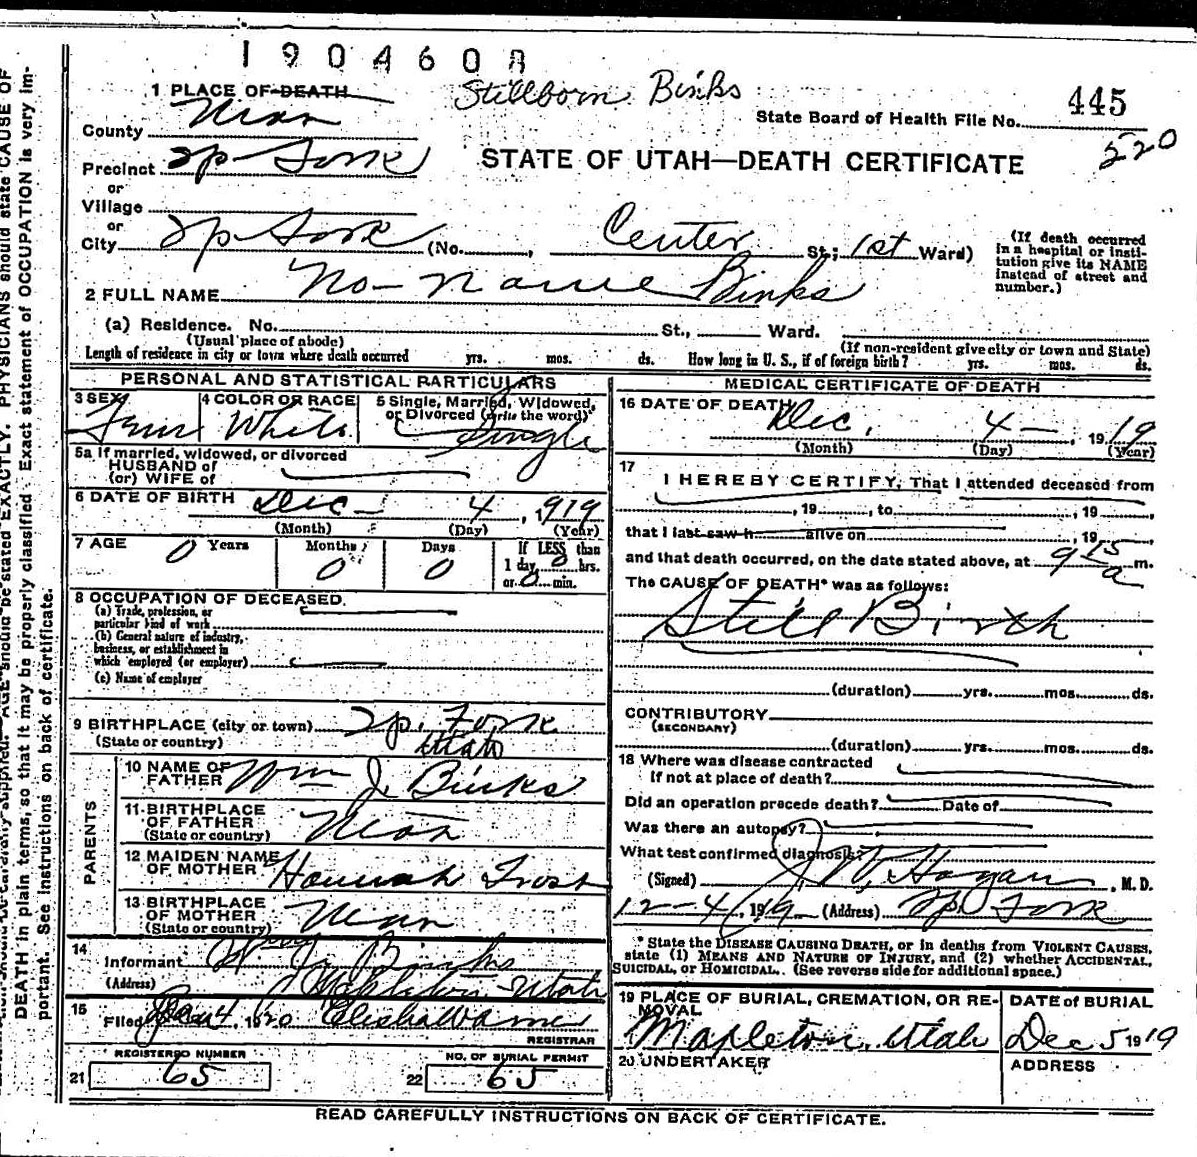 1904608
Stillborn Binks
1 PLACE OF DEATH
State Board of Health File No. 445
520
County Utah
Precinct Sp Fork
STATE OF UTAH—DEATH CERTIFICATE
or
Village
or
City Sp Fork (No. , Center St; 1st Ward)
(If death occurred in a hospital or insti-
tution give its NAME
instead of street and
number.)
2 FULL NAME No-Name Binks
(a) Residence. No. St., Ward.
(Usual place of abode) (If non-resident give city or town and State)
Length of residence in city or town where death occurred yrs. mos. ds. How long in U. S., if of foreign birth? yrs. mos. ds.
PERSONAL AND STATISTICAL PARTICULARS
3 SEX 4 COLOR OR RACE 5 Single, Married, Widowed,
or Divorced (write the word)
Fem White Single
5a If married, widowed, or divorced
HUSBAND of
(or) WIFE of
6 DATE OF BIRTH Dec - 4, 919
(Month) (Day) (Year)
7 AGE 0 Years Months 0 Days 0 If LESS than
1 day 0 hrs.
or 0 min.
8 OCCUPATION OF DECEASED.
(a) Trade, profession, or
particular kind of work
(b) General nature of industry,
business, or establishment in
which employed (or employer)
(c) Name of employer
9 BIRTHPLACE (city or town) Sp. Fork
(State or country) Utah
PARENTS
10 NAME OF
FATHER Wm J. Binks
11 BIRTHPLACE
OF FATHER
(State or country) Utah
12 MAIDEN NAME
OF MOTHER Hannah Frost
13 BIRTHPLACE
OF MOTHER
(State or country) Utah
14
Informant Wm J. Binks
(Address) Mapleton-Utah
15
Filed Jan 4, 1920 Elisha Warner
REGISTRAR
REGISTERED NUMBER NO. OF BURIAL PERMIT
21 65 22 65
MEDICAL CERTIFICATE OF DEATH
16 DATE OF DEATH
Dec. 4 - , 1919
(Month) (Day) (Year)
17
I HEREBY CERTIFY, That I attended deceased from
, 19 , to , 19
that I last saw h alive on , 19
and that death occurred, on the date stated above, at 9 15 a m.
The CAUSE OF DEATH* was as follows:
Still Birth
(duration) yrs. mos. ds.
CONTRIBUTORY
(SECONDARY)
(duration) yrs. mos. ds.
18 Where was disease contracted
if not at place of death?
Did an operation precede death? Date of
Was there an autopsy?
What test confirmed diagnosis?
(Signed) J. W. Hagan, M. D.
12-4, 1919 (Address) Sp. Fork
* State the DISEASE CAUSING DEATH, or in deaths from VIOLENT CAUSES,
state (1) MEANS AND NATURE OF INJURY, and (2) whether ACCIDENTAL,
SUICIDAL, or HOMICIDAL. (See reverse side for additional space.)
19 PLACE OF BURIAL, CREMATION, OR RE-
MOVAL DATE of BURIAL
Mapleton, Utah Dec 5 1919
20 UNDERTAKER ADDRESS
READ CAREFULLY INSTRUCTIONS ON BACK OF CERTIFICATE.
AGE should be stated EXACTLY. PHYSICIANS should state CAUSE OF
DEATH in plain terms, so that it may be properly classified. Exact statement of OCCUPATION is very im-
portant. See instructions on back of certificate.